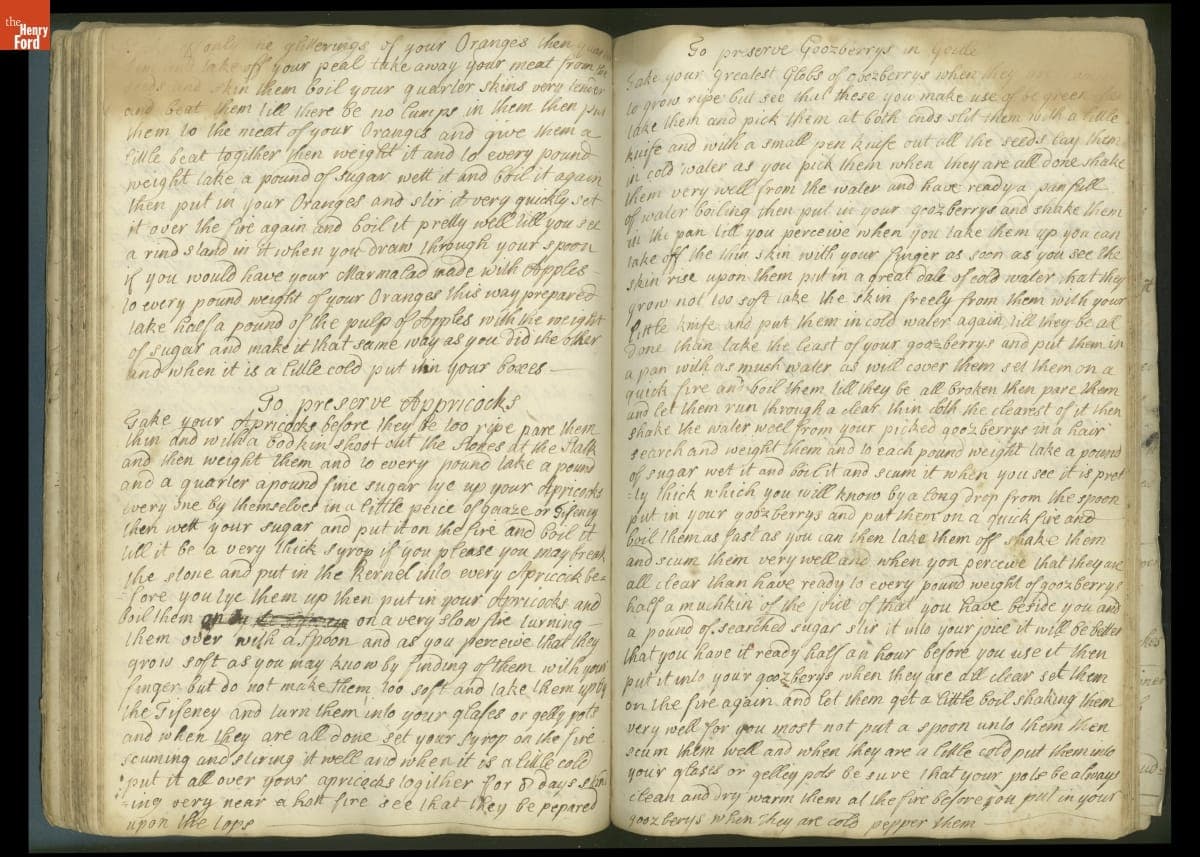 the
Henry
Ford
only the glitterings of your Oranges then
take off your peal take away your meat from the
seeds and skin them boil your quarter skins very tender
and beat them till there be no lumps in them then put
them to the meat of your Oranges and give them a
little beat togither then weight it and to every pound
weight take a pound of sugar wett it and boil it again
then put in your Oranges and stir it very quickly set
it over the fire again and boil it pretty well till you see
a rind stand in it when you draw through your spoon
if you would have your Marmalad made with Apples
to every pound weight of your Oranges this way prepared
take half a pound of the pulp of Apples with the weight
of sugar and make it that same way as you did the other
and when it is a little cold put in your boxes
To preserve Appricocks
Take your Apricocks before they be too ripe pare them
thin and with a bodkin shoot out the stones at the stalk
and then weight them and to every pound take a pound
and a quarter a pound fine sugar tye up your Apricocks
every one by themselves in a little peice of gaaze or Tifeney
then wett your sugar and put it on the fire and boil it
till it be a very thick syrop if you please you may break
the stone and put in the kernel into every Apricock be=
fore you tye them up then put in your Apricocks and
boil them on a very slow fire turning
them over with a spoon and as you perceive that they
grow soft as you may know by finding of them with your
finger but do not make them too soft and take them up by
the Tifeney and turn them into your glases or gelly pots
and when they are all done set your syrop on the fire
scuming and stiring it well and when it is a little cold
put it all over your apricocks togither for 8 days
=ing very near a hott fire see that they be pepared
upon the tops
To preserve Goozberrys in geille
Take your greatest Globs of goozberrys when they
to grow ripe but see that these you make use of be green
take them and pick them at both ends slit them with a little
knife and with a small pen knife out all the seeds lay them
in cold water as you pick them when they are all done shake
them very well from the water and have ready a pan full
of water boiling then put in your goozberrys and shake them
in the pan till you perceive when you take them up you can
take off the thin skin with your finger as soon as you see the
skin rise upon them put in a great dale of cold water that they
grow not too soft take the skin freely from them with your
little knife and put them in cold water again till they be all
done than take the least of your goozberrys and put them in
a pan with as much water as will cover them set them on a
quick fire and boil them till they be all broken then pare them
and let them run through a clear thin cloth the clearest of it then
shake the water weel from your picked goozberrys in a hair
search and weight them and to each pound weight take a pound
of sugar wet it and boil it and scum it when you see it is pret
=ly thick which you will know by a long drop from the spoon
put in your goozberrys and put them on a quick fire and
boil them as fast as you can then take them off shake them
and scum them very well and when you perceive that they are
all clear than have ready to every pound weight of goozberrys
half a muchkin of the joice of that you have beside you and
a pound of searched sugar stir it into your joice it will be better
that you have it ready half an hour before you use it then
put it into your goozberys when they are all clear set them
on the fire again and let them get a little boil shaking them
very well for you most not put a spoon unto them then
scum them well and when they are a little cold put them into
your glases or gelley pots be sure that your pots be always
clean and dry warm them at the fire before you put in your
goozberys when they are cold pepper them